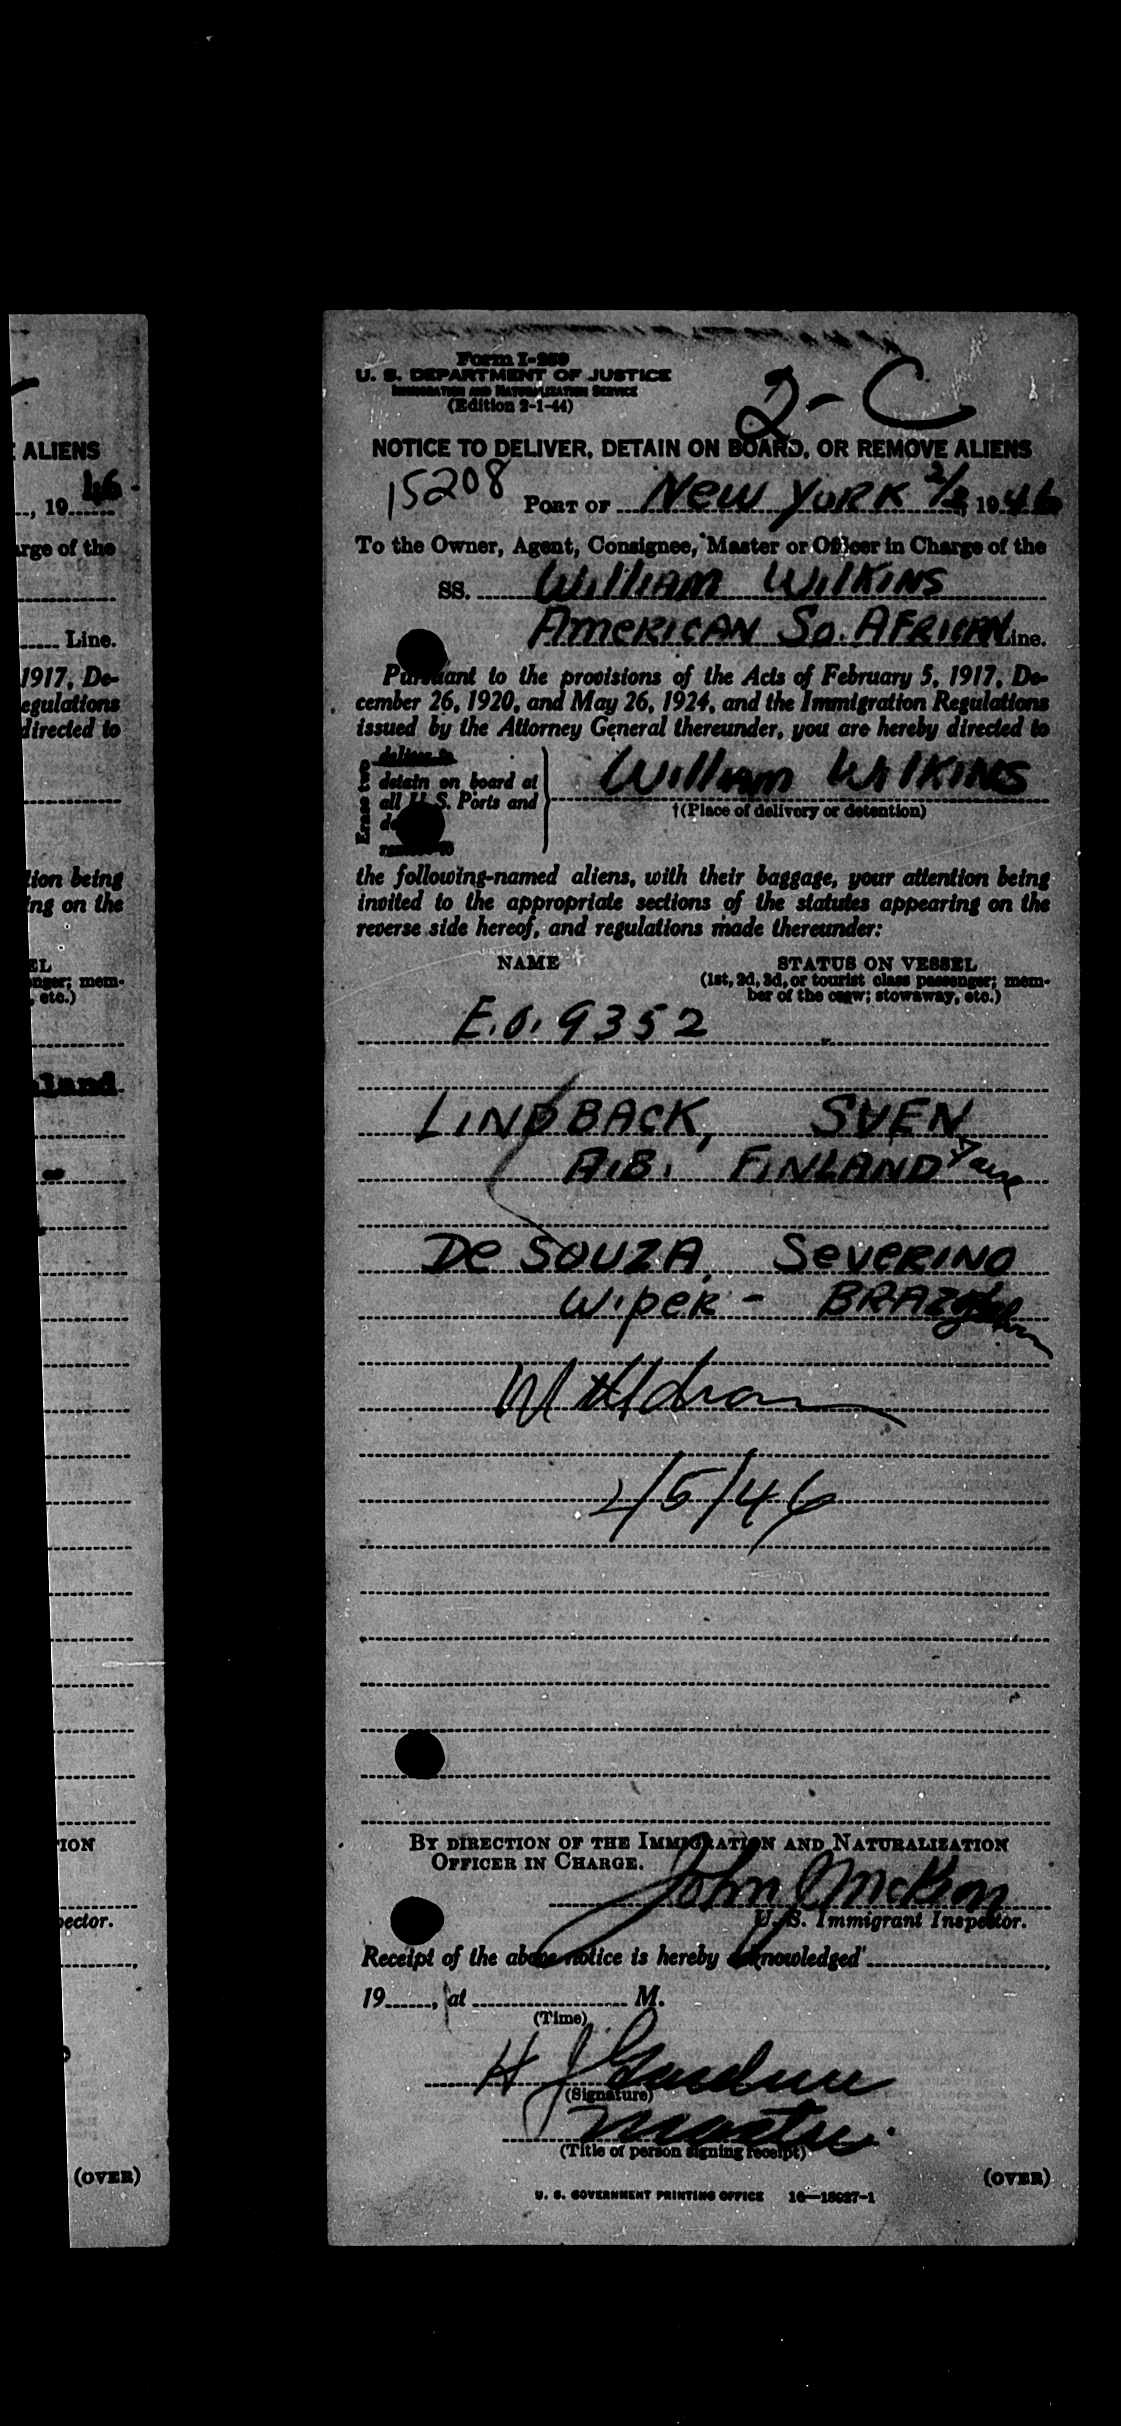 ALIENS
, 19 46
arge of the
Line.
1917, De-
egulations
directed to
tion being
ng on the
EL
enger; mem-
, etc.)
land.
TION
pector.
(OVER)
Form I-259
U. S. DEPARTMENT OF JUSTICE
IMMIGRATION AND NATURALIZATION SERVICE
(Edition 2-1-44)
2-C
NOTICE TO DELIVER, DETAIN ON BOARD, OR REMOVE ALIENS
15208 PORT OF New York 2/2, 1946
To the Owner, Agent, Consignee, Master or Officer in Charge of the
SS. William Wilkins
American So. African Line.
Pursuant to the provisions of the Acts of February 5, 1917, De-
cember 26, 1920, and May 26, 1924, and the Immigration Regulations
issued by the Attorney General thereunder, you are hereby directed to
Erase two
deliver to
detain on board at
all U. S. Ports and
William Wilkins
†(Place of delivery or detention)
the following-named aliens, with their baggage, your attention being
invited to the appropriate sections of the statutes appearing on the
reverse side hereof, and regulations made thereunder:
NAME STATUS ON VESSEL
(1st, 2d, 3d, or tourist class passenger; mem-
ber of the crew; stowaway, etc.)
E.O. 9352
LINDBACK, SVEN
A.B. FINLAND
De SOUZA, Severino
Wiper - BRAZ
Withdrawn
2/5/46
BY DIRECTION OF THE IMMIGRATION AND NATURALIZATION
OFFICER IN CHARGE.
John
U. S. Immigrant Inspector.
Receipt of the above notice is hereby acknowledged
19, at M.
(Time)
H J Gardner
(Signature)
Master
(Title of person signing receipt)
(OVER)
U. S. GOVERNMENT PRINTING OFFICE 16—13027-1